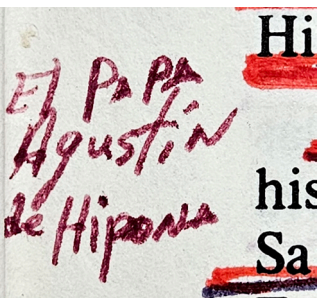 El PAPA
Agustín
de Hipona
Hi
his
Sa